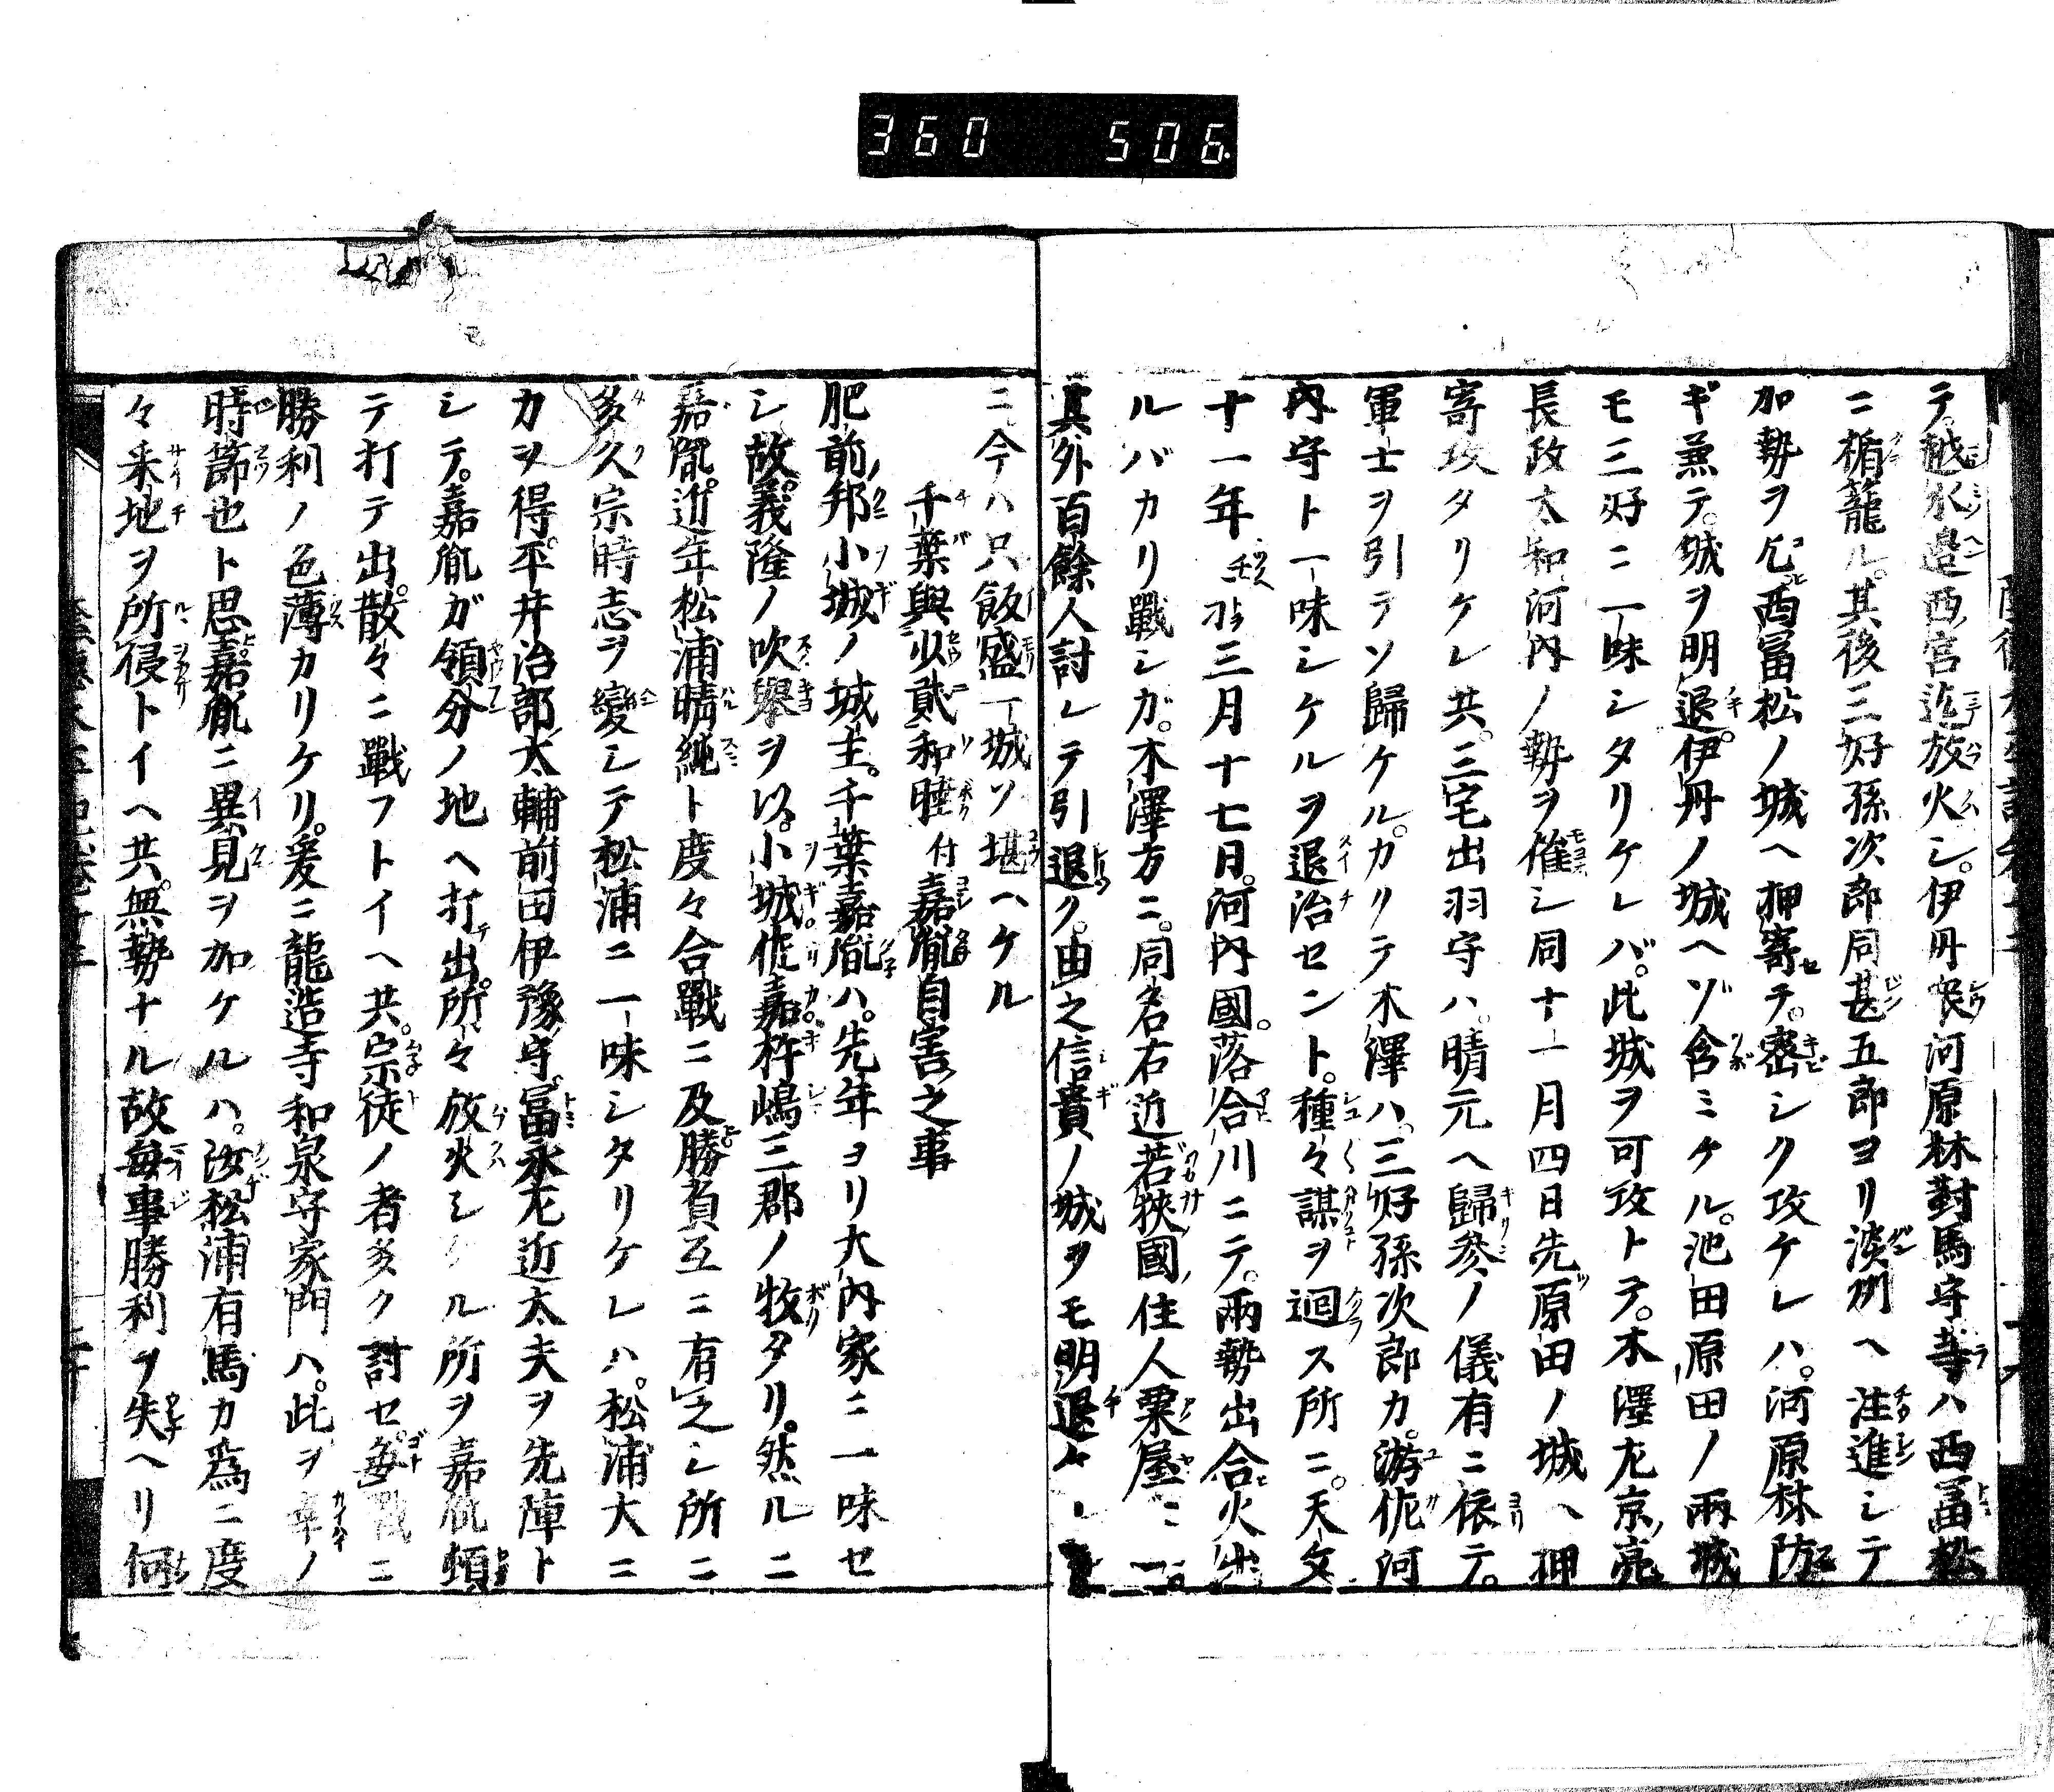 360 506
テ。越水邉西宮迄放火シ。伊丹衆河原林對馬守等ハ西冨松
ニ楯籠ル。其後三好孫次郎同甚五郎ヨリ淡州ヘ注進シテ
加勢ヲ乞西冨松ノ城ヘ押寄テ。密シク攻ケレハ。河原林防
ギ兼テ。城ヲ明退。伊丹ノ城ヘゾ含ミケル。池田原田ノ兩城
モ三好ニ一味シタリケレバ。此城ヲ可攻トテ。木澤左京亮
長政太和河内ノ勢ヲ催シ同十一月四日先原田ノ城ヘ押
寄攻タリケレ共。三宅出羽守ハ。晴元ヘ歸參ノ儀有ニ依テ。
軍士ヲ引テソ歸ケル。カリテ木澤ハ。三好孫次郎カ。游佐河
内守ト一味シケルヲ退治セント。種々謀ヲ廻ス所ニ。天文
十一年壬寅三月十七日。河内國。落合川ニテ。兩勢出合火出
ルバカリ戰シガ。木澤方ニ。同名右近若狹國住人粟屋
其外百餘人討レテ引退ク。由之信貴ノ城ヲモ明退ケ
ニ今ハ只飯盛一城ソ堪ヘケル
千葉與少貳和睦付嘉胤自害之事
肥前邦小城ノ城主。千葉嘉胤ハ。先年ヨリ大内家ニ一味セ
シ故。義隆ノ吹擧ヲ以。小城佐嘉杵嶋三郡ノ牧タリ。然ルニ
嘉胤。近年松浦晴純ト度々合戰ニ及勝負互ニ有之シ所ニ
多久宗時志ヲ變シテ松浦ニ一味シタリケレハ。松浦大ニ
力ヲ得。平井治部太輔前田伊豫守。冨永左近太夫ヲ先陣ト
シテ。嘉胤ガ領分ノ地ヘ打出。所々放火シケル所ヲ嘉胤頓
テ打テ出。散々ニ戰フトイヘ共。宗徒ノ者多ク討セ。毎戰ニ
勝利ノ色薄カリケリ。爰ニ龍造寺和泉守家門ハ。此ヲ幸ノ
時節也ト思嘉胤ニ異見ヲ加ケルハ。汝松浦有馬カ為ニ度
々釆地ヲ所侵トイヘ共。無勢ナル故毎事勝利ヲ失ヘリ何